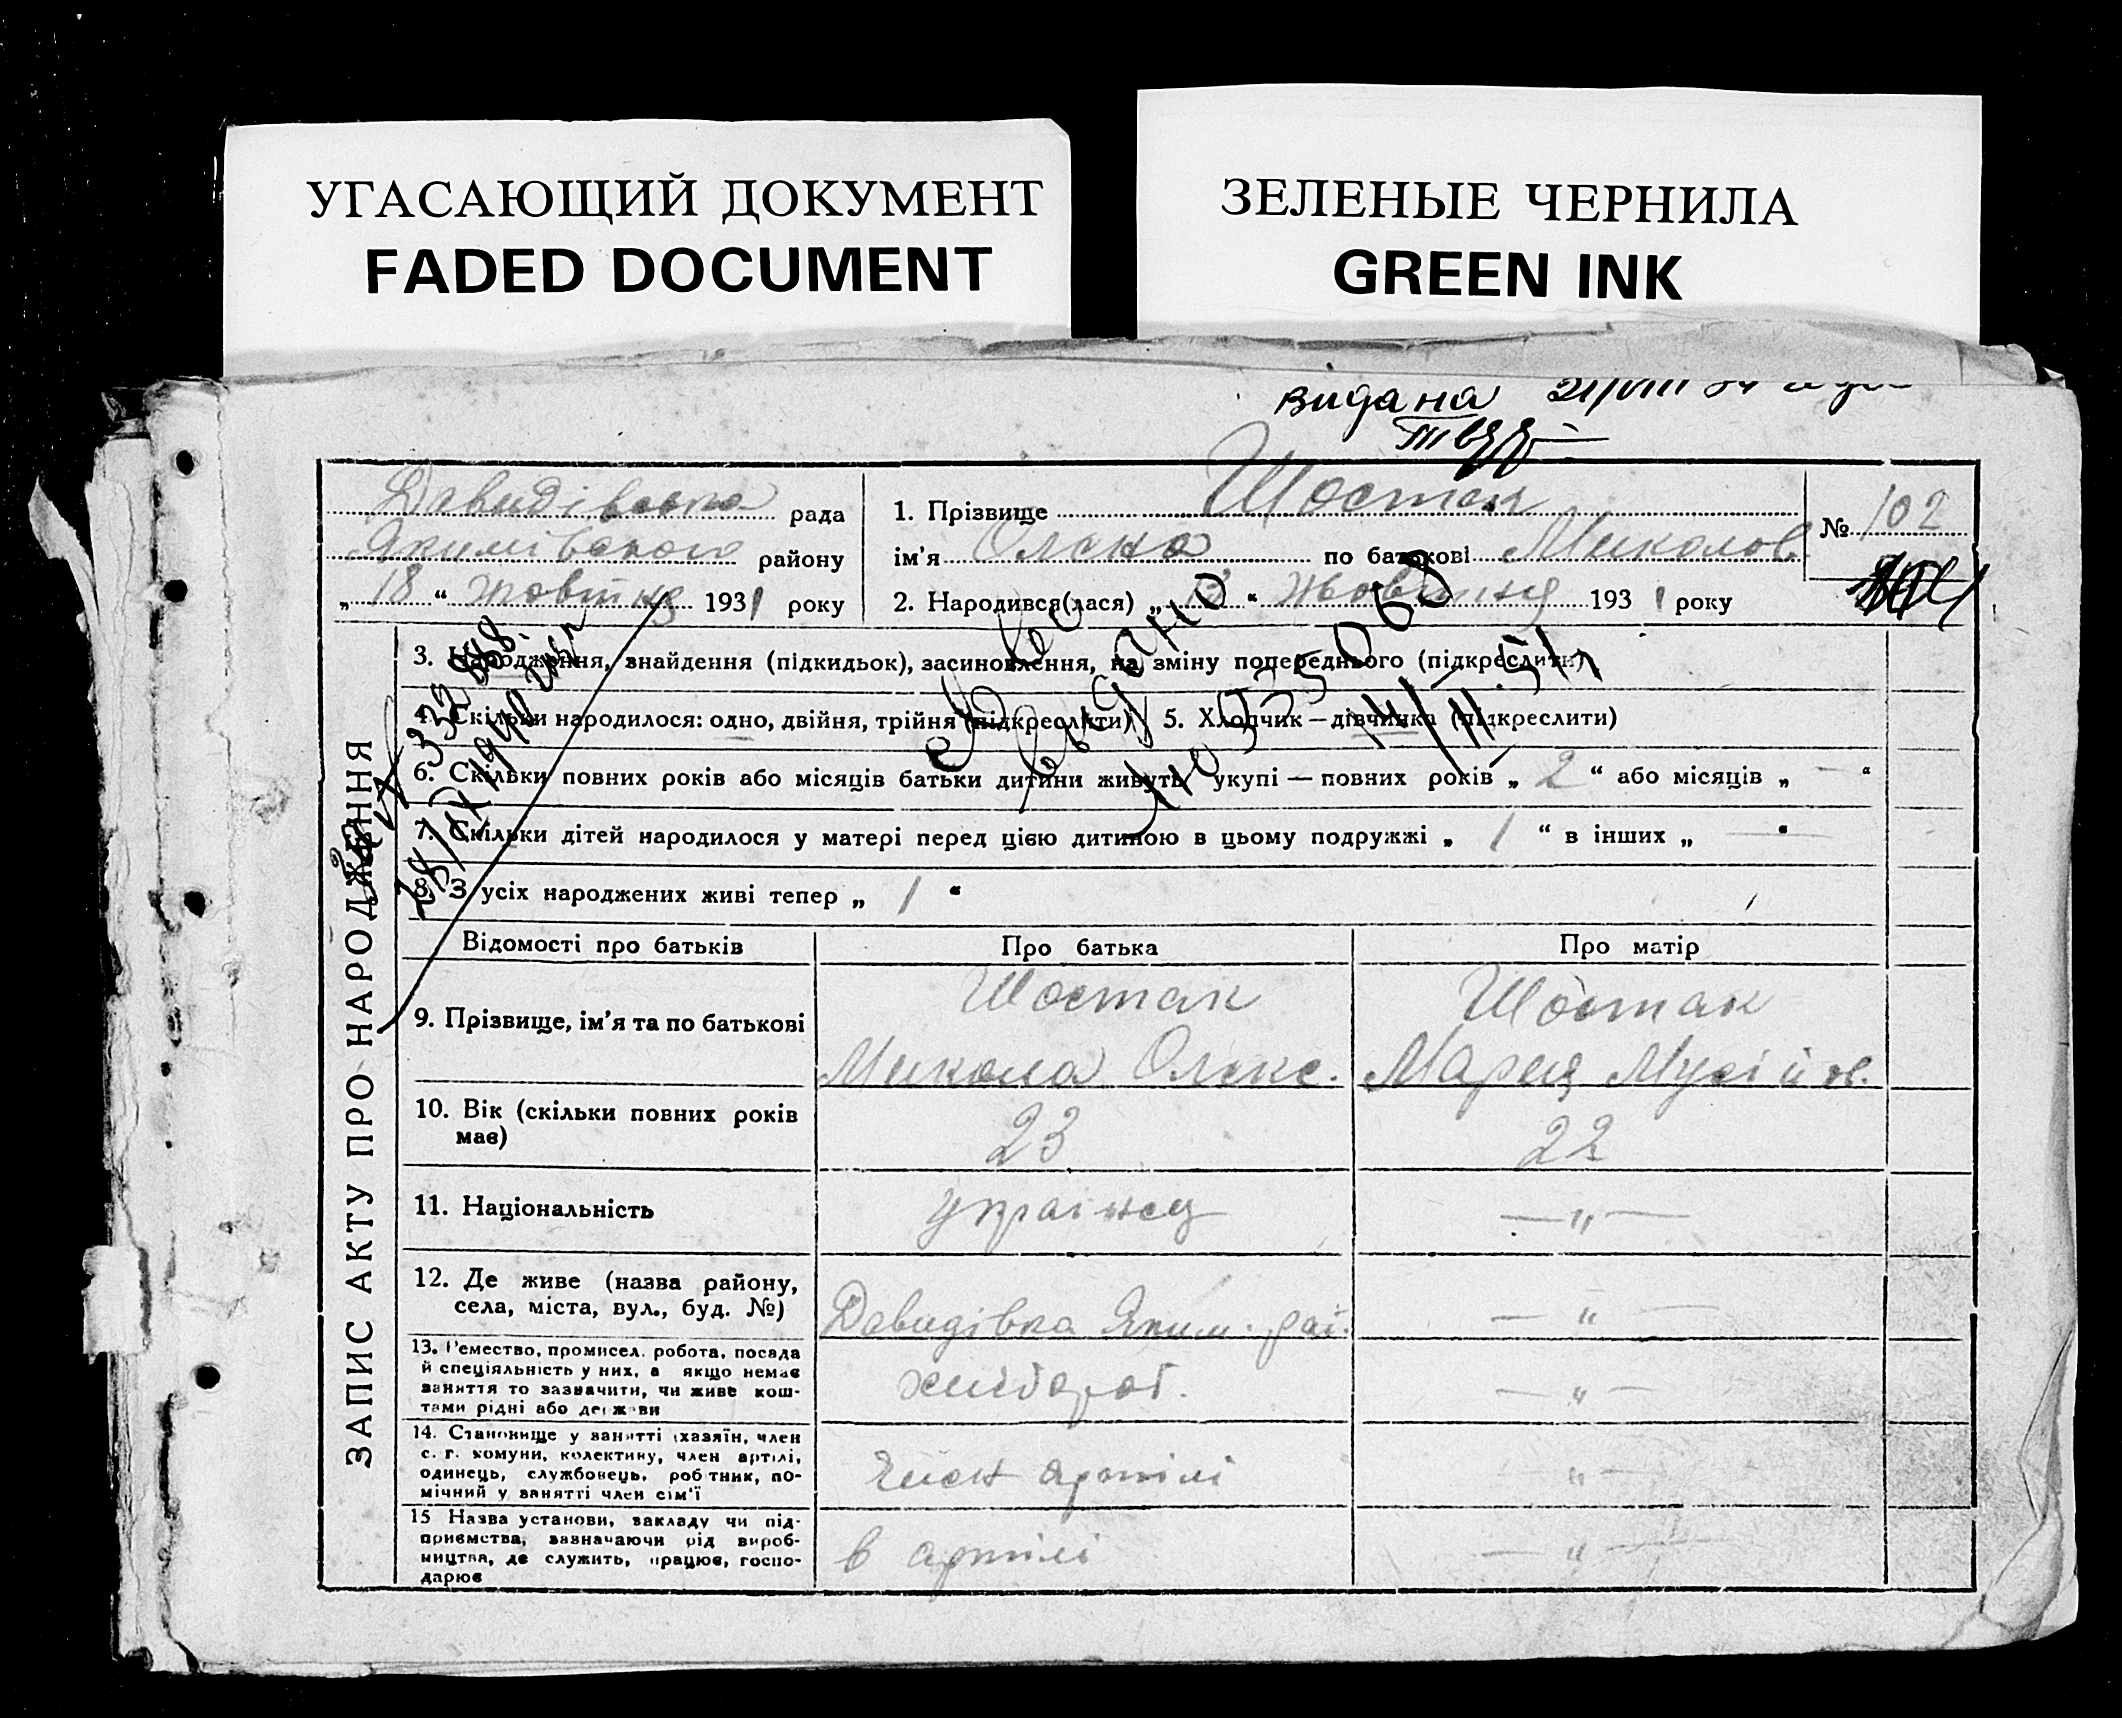 УГАСАЮЩИЙ ДОКУМЕНТ
FADED DOCUMENT
ЗЕЛЕНЫЕ ЧЕРНИЛА
GREEN INK
видана
Давидівська рада
Якимівського району
„ 18 “ жовтня 1931 року
1. Прізвище Шостак
ім'я Олена по батькові Миколов.
2. Народився(лася) „ “ Жовтня 1931 року
№ 102
ЗАПИС АКТУ ПРО НАРОДЖЕННЯ
3. Народження, знайдення (підкидьок), засиновлення, на зміну попереднього (підкреслити)
4. Скільки народилося: одно, двійня, трійня (підкреслити) 5. Хлопчик — дівчинка (підкреслити)
6. Скільки повних років або місяців батьки дитини живуть укупі — повних років „ 2 “ або місяців „ — “
7. Скільки дітей народилося у матері перед цією дитиною в цьому подружжі „ 1 “ в інших „ — “
8. З усіх народжених живі тепер „ 1 “
28/IX 1940
Відомості про батьків Про батька Про матір
9. Прізвище, ім'я та по батькові
Шостак
Микола Олекс.
Шостак
Мария Мусійов.
10. Вік (скільки повних років
має)
23
22
11. Національність
українец
— „ —
12. Де живе (назва району,
села, міста, вул., буд. №)
Давидівка Яким. рай.
— „ —
13. Ремество, промисел, робота, посада
й спеціяльність у них, а якщо немає
заняття то зазначити, чи живе кош-
тами рідні або держави
хлібороб.
— „ —
14. Становище у занятті (хазяїн, член
с. г. комуни, колективу, член артілі,
одинець, службовець, робітник, по-
мічний у занятті член сім'ї
Член артілі
— „ —
15 Назва установи, закладу чи під-
приємства, зазначаючи рід вироб-
ництва, де служить, працює, госпо-
дарює
в артілі
— „ —